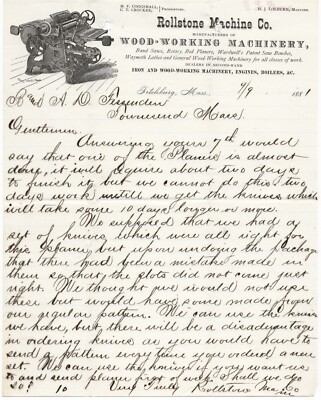 M. F. CONDWALL,
C. C. CROCKER, } PROPRIETORS.
H. J. COLBURN, MANAGER
Rollstone Machine Co.
MANUFACTURERS OF
WOOD-WORKING MACHINERY,
Band Saws, Rotary Bed Planers, Wardwell's Patent Saw Benches,
Waymoth Lathes and General Wood Working Machinery for all classes of work.
DEALERS IN SECOND-HAND
IRON AND WOOD-WORKING MACHINERY, ENGINES, BOILERS, &C.
Fitchburg, Mass. 4/9 1881
A. D. Fessenden
Townsend Mass.
Gentlemen.
Answering yours 7th would
say that one of the Planers is almost
done, it will require about two days
to finish it but we cannot do this two
days work untill we get the knives which
will take some 10 days longer or more.
We supposed that we had a
set of knives which were all right for
this Planer, but upon undoing the package
that there had been a mistake made in
them so that the slots did not come just
right. We thought we would not use
these but would have some made from
our regular pattern. We can use the knives
we have, but there will be a disadvantage
in ordering knives as you would have to
send a pattern every time you ordered a new
set. We can use the knives if you want us
to and send planer first of week. Shall we do
so? Very Truly Rollstone Ma. Co